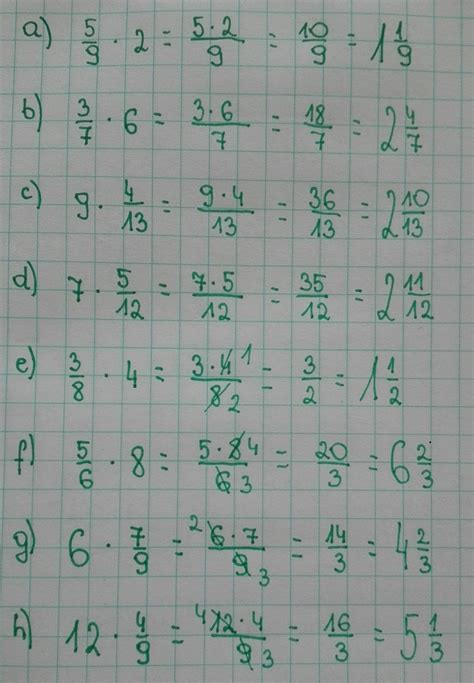 a) 5/9 · 2 = 5·2/9 = 10/9 = 1 1/9
b) 3/7 · 6 = 3·6/7 = 18/7 = 2 4/7
c) 9 · 4/13 = 9·4/13 = 36/13 = 2 10/13
d) 7 · 5/12 = 7·5/12 = 35/12 = 2 11/12
e) 3/8 · 4 = 3·4 1/8 2 = 3/2 = 1 1/2
f) 5/6 · 8 = 5·8 4/6 3 = 20/3 = 6 2/3
g) 6 · 7/9 = 2 6·7/9 3 = 14/3 = 4 2/3
h) 12 · 4/9 = 4 12·4/9 3 = 16/3 = 5 1/3